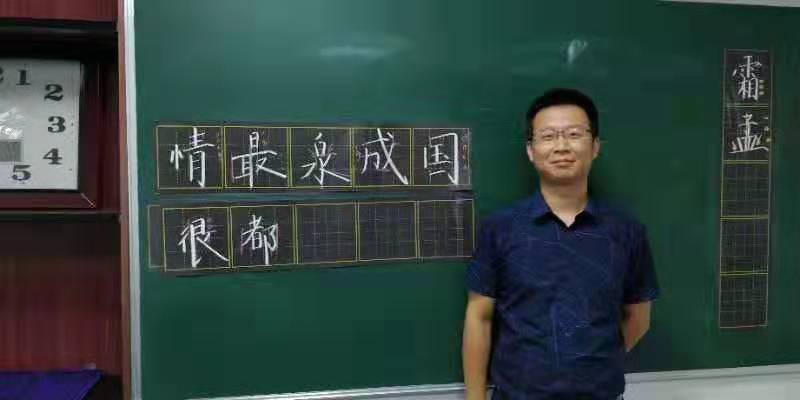 1
2
3
4
5
情最泉成国
很都
霜
孟